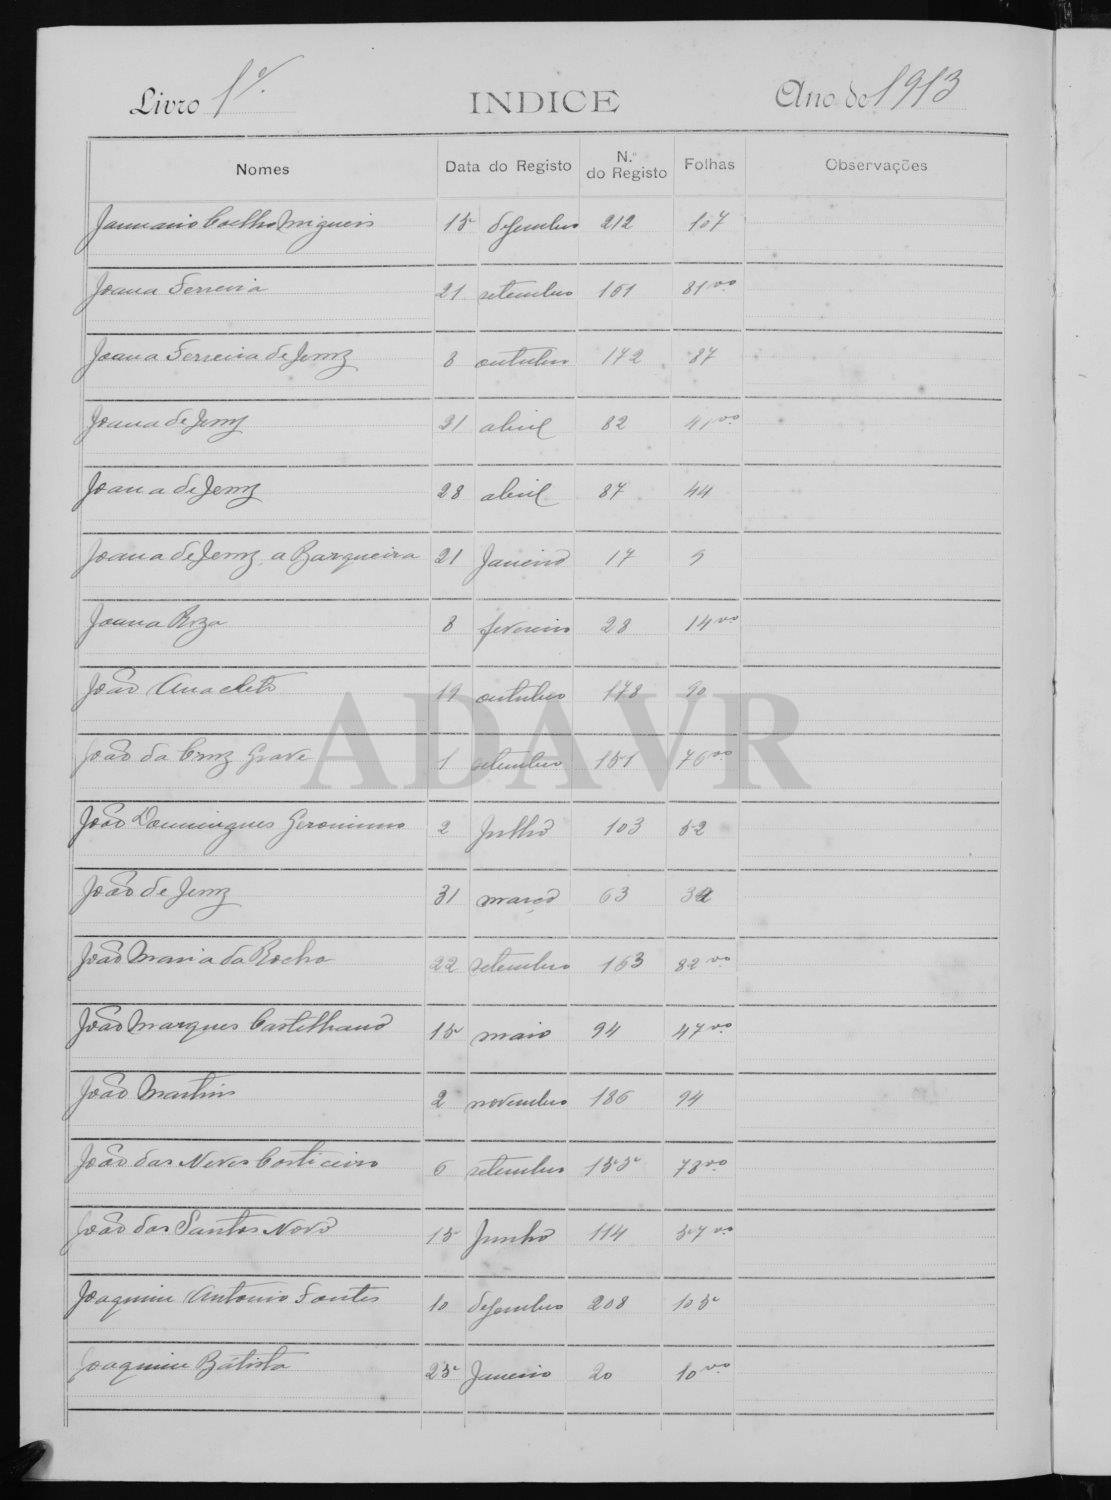 Livro 1º.
INDICE
Ano de 1913
Nomes Data do Registo N.º do Registo Folhas Observações
Januario Coelho Migueis 15 desembro 212 107
Joana Ferreira 21 setembro 161 81 vº
Joana Ferreira de Jesus 8 outubro 172 87
Joana de Jesus 21 abril 82 41 vº
Joana de Jesus 28 abril 87 44
Joana de Jesus, a Barqueira 21 Janeiro 17 9
Joana Roza 8 fevereiro 28 14 vº
João Anacleto 19 outubro 178 90
João da Cruz Grave 1 setembro 151 76 vº
João Domingues Geronimo 2 Junho 103 52
João de Jesus 31 março 63 32
João Maria da Rocha 22 setembro 163 82 vº
João Marques Castelhano 15 maio 94 47 vº
João Martins 2 novembro 186 94
João das Neves Corticeiro 6 setembro 155 78 vº
João dos Santos Novo 15 Junho 114 57 vº
Joaquim Antonio Fontes 10 desembro 208 105
Joaquim Batista 25 Janeiro 20 10 vº
ADAVR